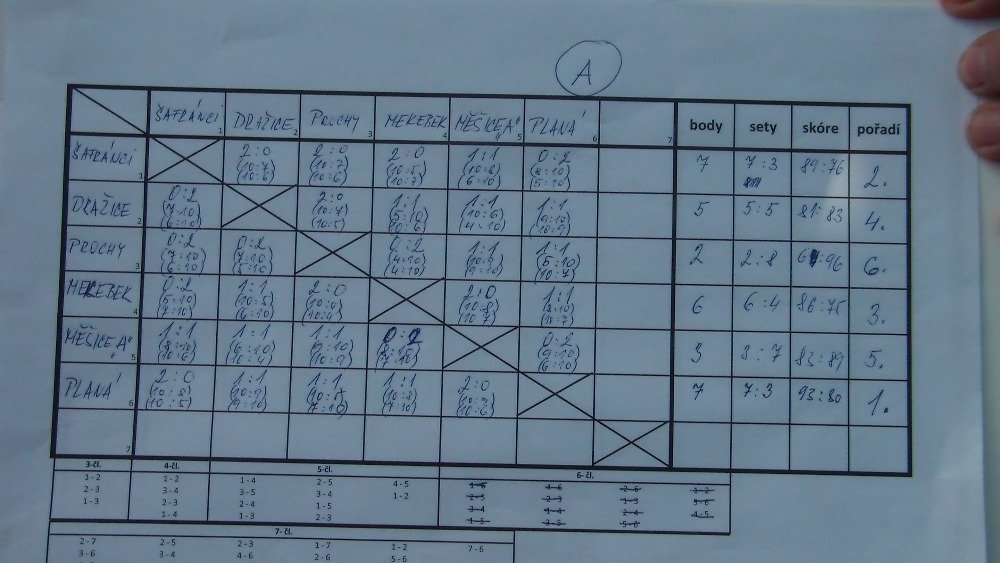 A
ŠATLÁNCI 1 DRAŽICE 2 PROCHY 3 MEKEBEK 4 MĚŠICE „A" 5 PLANÁ 6 7 body sety skóre pořadí
ŠATLÁNCI 1 2:0 2:0 2:0 1:1 0:2 7 7:3 89:76 2.
(10:7) (10:7) (10:5) (10:8) (8:10)
(10:6) (10:6) (10:7) (6:10) (5:10)
DRAŽICE 2 0:2 2:0 1:1 1:1 1:1 5 5:5 81:83 4.
(7:10) (10:7) (5:10) (10:6) (9:10)
(6:10) (10:5) (10:6) (4:10) (10:9)
PROCHY 3 0:2 0:2 0:2 1:1 1:1 2 2:8 96 6.
(7:10) (7:10) (4:10) (10:9) (5:10)
(6:10) (5:10) (4:10) (9:10) (10:7)
MEKEBEK 4 0:2 1:1 2:0 2:0 1:1 6 6:4 86:75 3.
(5:10) (10:5) (10:4) (10:8) (8:10)
(7:10) (6:10) (10:4) (10:7) (10:7)
MĚŠICE „A" 5 1:1 1:1 1:1 0:2 0:2 3 3:7 83:89 5.
(8:10) (6:10) (9:10) (8:10) (9:10)
(10:6) (10:4) (10:9) (7:10) (6:10)
PLANÁ 6 2:0 1:1 1:1 1:1 2:0 7 7:3 93:80 1.
(10:8) (10:9) (10:5) (10:8) (10:9)
(10:5) (9:10) (7:10) (7:10) (10:6)
7
3-čl. 4-čl. 5-čl. 6-čl.
1-2 1-4 2-5 4-5 1-6 4-6 1-2
2-3 3-4 3-5 3-4 1-2 3-6
1-3 2-3 2-4 1-5 1-4 4-5
1-4 1-3 2-3 3-5
7-čl.
2-7 2-5 2-3 1-7 1-2 7-6
3-6 3-4 4-6 2-6 5-6